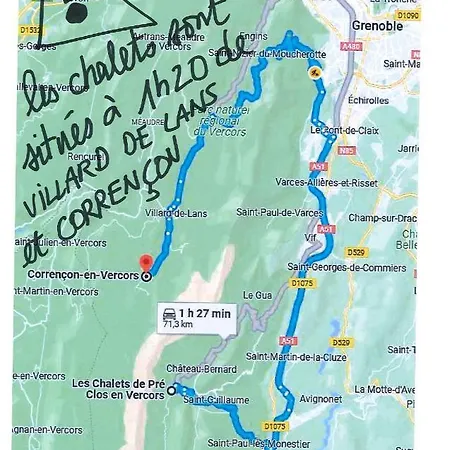 D1532
D1090
Engins
Grenoble
Autrans-Méaudre
en-Vercors
Saint-Nizier-du-Moucherotte
A480
Saint-Ma
les chalets sont
situés à 1h20 de
VILLARD DE LANS
et CORRENÇON
Échirolles
MÉAUDRE
parc naturel
régional
du Vercors
Le Pont-de-Claix
N85
Jarrie
Rencurel
A51
Varces-Allières-et-Risset
Villard-de-Lans
Saint-Paul-de-Varces
Champ-sur-Drac
A51
Vif
Saint-Julien-en-Vercors
D529
Corrençon-en-Vercors
Saint-Georges-de-Commiers
D1075
Saint-Martin-en-Vercors
Le Gua
1 h 27 min
71,3 km
A51
D529
Saint-Martin-de-la-Cluze
Château-Bernard
Les Chalets de Pré
Clos en Vercors
La Motte-d'Aveillans
Saint-Guillaume
Avignonet
D1075
Saint-Paul-lès-Monestier